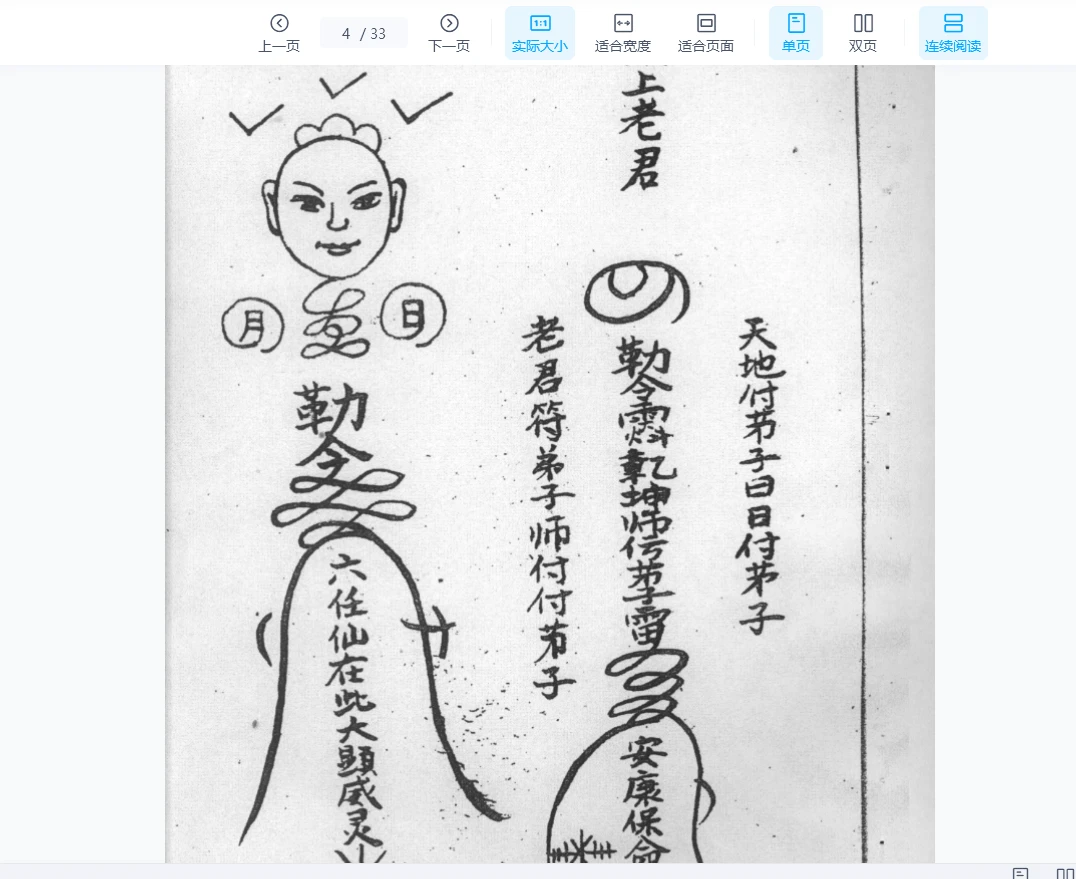 上一页
4 / 33
下一页
1:1
实际大小
适合宽度
适合页面
单页
双页
连续阅读
上老君
天地付苐子曰日付苐子
勒令
乾坤师传苐子雷
安康保命
老君符弟子师付付苐子
日
月
勒令
六任仙在此大顕威灵